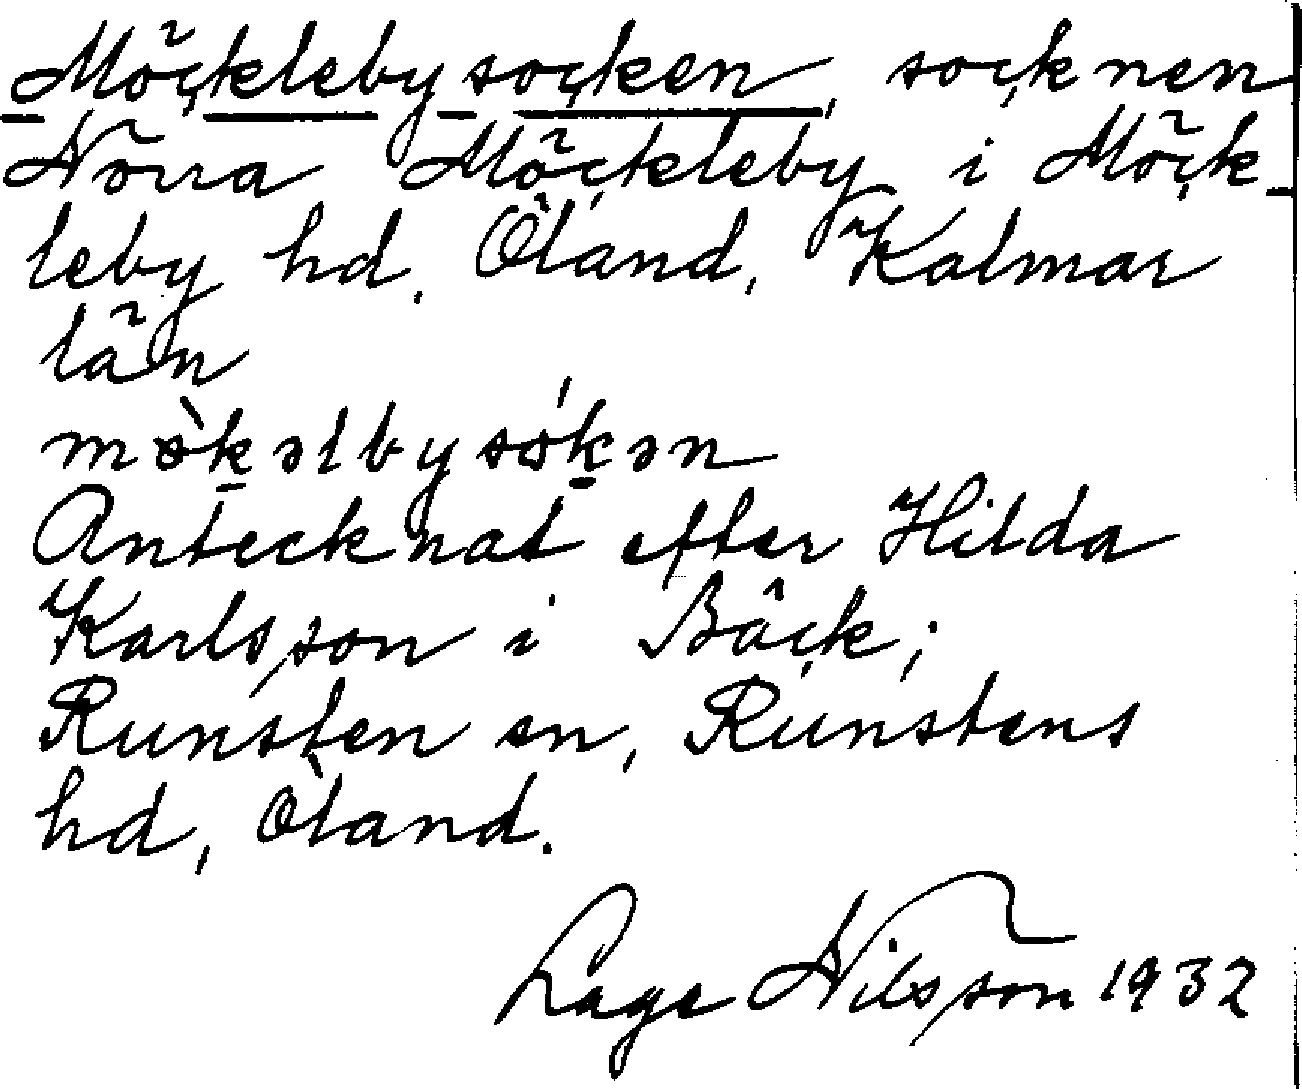 Möckleby socken, socknen
Norra Möckleby i Möck-
leby hd. Öland, Kalmar
län
mök̲əlbysók̲ən
Antecknat efter Hilda
Karlsson i Bäck,
Runsten sn, Runstens
hd, Öland.
Lage Nilsson 1932